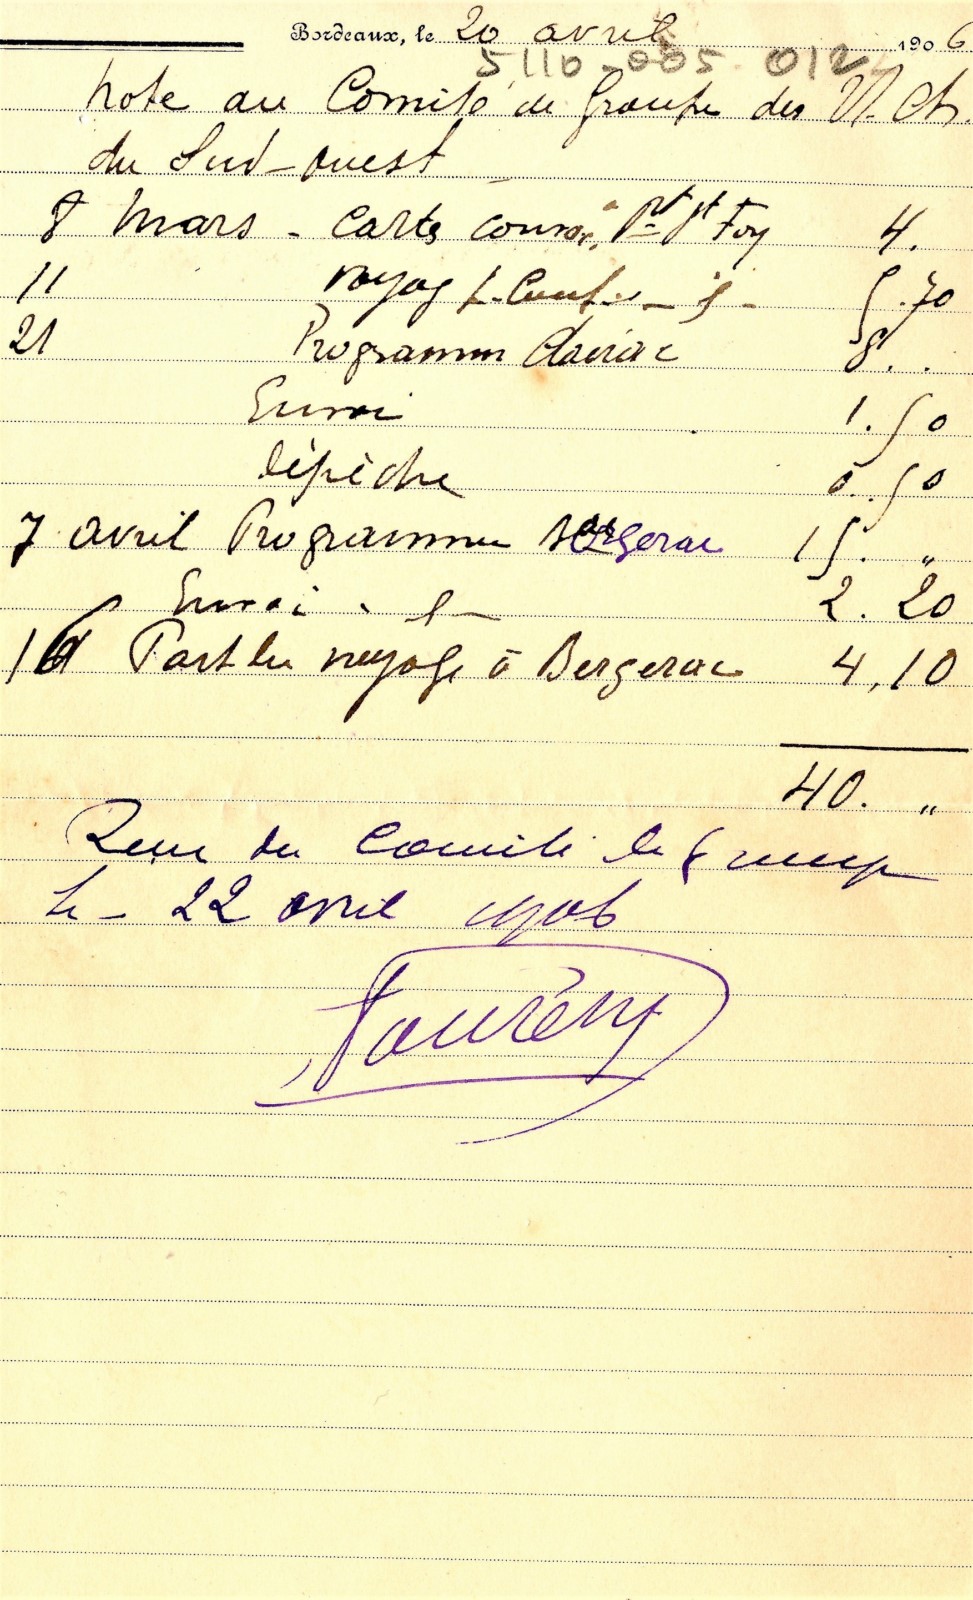 Bordeaux, le 20 avril 1906
5110-005 012
Note au Comité de Groupe des U. Ch.
du Sud-Ouest
8 Mars - Cartes convoc. Pt St Foy 4.
11 voyag 5.70
21 Programme Clairac 8..
Envoi 1.50
dépêche 0.50
7 avril Programme Bergerac 15. "
Envoi - 2.20
16 Part du voyage à Bergerac 4,10
40. "
Reçu du Comité de Groupe
le - 22 avril 1906